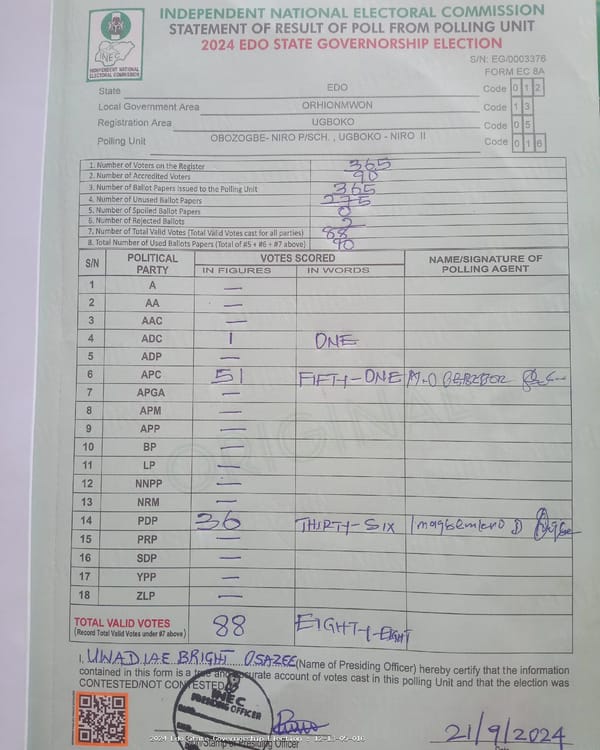 INDEPENDENT NATIONAL ELECTORAL COMMISSION
STATEMENT OF RESULT OF POLL FROM POLLING UNIT
2024 EDO STATE GOVERNORSHIP ELECTION
INEC
INDEPENDENT NATIONAL
ELECTORAL COMMISSION
S/N: EG/0003376
FORM EC 8A
State EDO Code 0 1 2
Local Government Area ORHIONMWON Code 1 3
Registration Area UGBOKO Code 0 5
Polling Unit OBOZOGBE- NIRO P/SCH. , UGBOKO - NIRO II Code 0 1 6
1. Number of Voters on the Register 365
2. Number of Accredited Voters 90
3. Number of Ballot Papers Issued to the Polling Unit 365
4. Number of Unused Ballot Papers 275
5. Number of Spoiled Ballot Papers 0
6. Number of Rejected Ballots 2
7. Number of Total Valid Votes (Total Valid Votes cast for all parties) 88
8. Total Number of Used Ballots Papers (Total of #5 + #6 + #7 above) 90
S/N POLITICAL PARTY VOTES SCORED NAME/SIGNATURE OF POLLING AGENT
IN FIGURES IN WORDS
1 A —
2 AA —
3 AAC —
4 ADC 1 ONE
5 ADP —
6 APC 51 FIFTY-ONE
7 APGA —
8 APM —
9 APP —
10 BP —
11 LP —
12 NNPP —
13 NRM —
14 PDP 36 THIRTY-SIX
15 PRP —
16 SDP —
17 YPP —
18 ZLP —
TOTAL VALID VOTES 88 EIGHTY-EIGHT
(Record Total Valid Votes under #7 above)
ORIGINAL
I, UWADIAE BRIGHT OSAZEE (Name of Presiding Officer) hereby certify that the information
contained in this form is a true and accurate account of votes cast in this polling Unit and that the election was
CONTESTED/NOT CONTESTED
INEC
PRESIDING OFFICER
21/9/2024
2024 Edo State Governorship Election - 12-13-05-016
Stamp of Presiding Officer